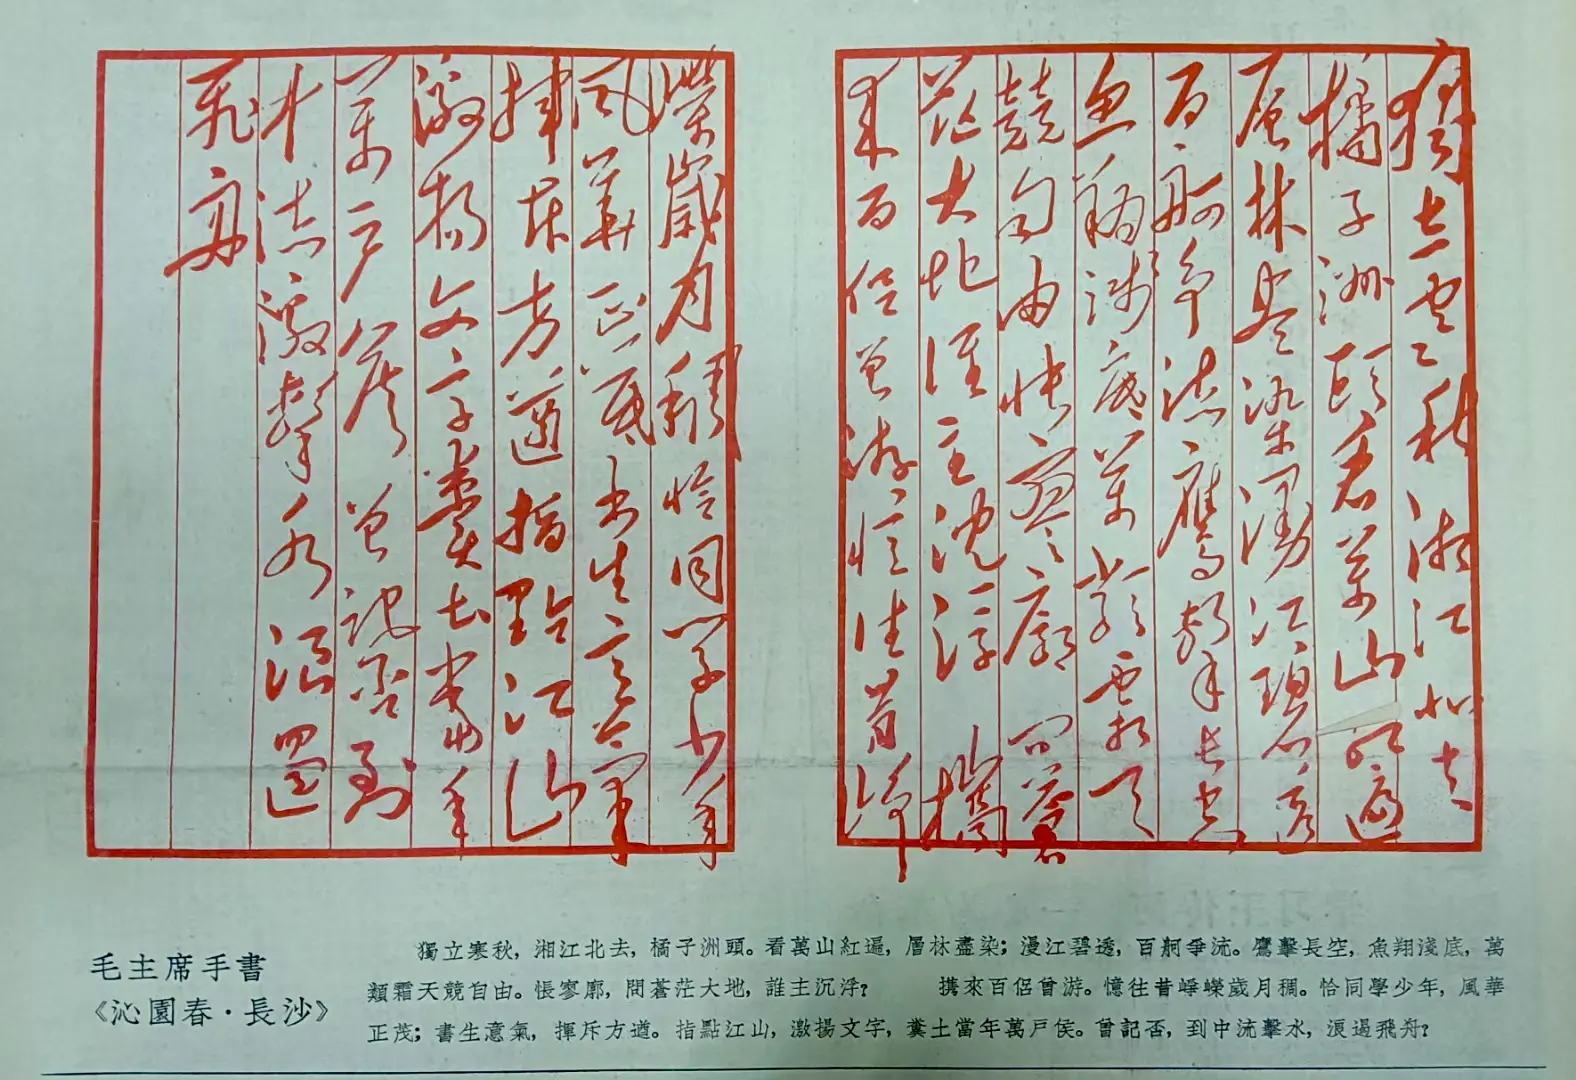 獨立寒秋湘江北去
橘子洲頭看萬山紅遍
層林盡染漫江碧透
百舸爭流鷹擊長空
魚翔淺底萬類霜天
競自由悵寥廓問蒼
茫大地誰主沉浮 攜
來百侶曾游憶往昔崢
嶸歲月稠恰同學少年
風華正茂書生意氣
揮斥方遒指點江山
激揚文字糞土當年
萬户侯曾記否到
中流擊水浪遏
飛舟
毛主席手書
《沁園春·長沙》
獨立寒秋，湘江北去，橘子洲頭。看萬山紅遍，層林盡染；漫江碧透，百舸爭流。鷹擊長空，魚翔淺底，萬
類霜天競自由。悵寥廓，問蒼茫大地，誰主沉浮？ 携來百侶曾游。憶往昔崢嶸歲月稠。恰同學少年，風華
正茂；書生意氣，揮斥方遒。指點江山，激揚文字，糞土當年萬戸侯。曾記否，到中流擊水，浪遏飛舟？